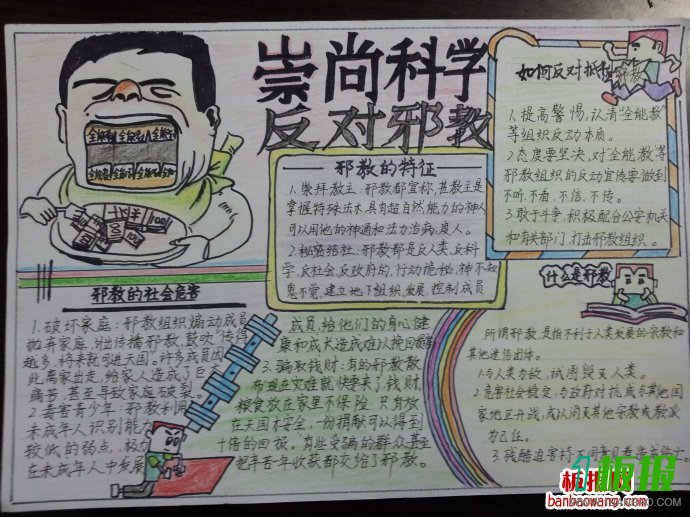 崇尚科学
反对邪教
全能教 全能教 全能教
全能教 全能教
100
邪教的特征
1.崇拜教主:邪教都宣称,其教主是
掌握特殊法术,具有超自然能力的神人
可以用他的神通和法力治病,度人。
2.秘密结社:邪教都是反人类、反科
学、反社会、反政府的,行动诡秘,神不知
鬼不觉,建立地下组织,发展、控制成员
如何反对抵制邪教
1.提高警惕,认清"全能教"
等组织反动本质。
2.态度要坚决,对"全能教"等
邪教组织的反动宣传要做到
不听、不看、不信、不传。
3.敢于斗争,积极配合公安机关
和有关部门,打击邪教组织。
什么是邪教
所谓邪教,是指不利于人类发展的宗教和
其他迷信团体。
1.与人类为敌,试图毁灭人类。
2.危害社会稳定,与政府对抗或与其他国
家地区开战,或认同受其他宗教或教派
为己任。
3.残酷迫害持不同
邪教的社会危害
1.破坏家庭:邪教组织煽动成员
抛弃家庭,外出传播邪教,鼓吹"传得
越多,将来就可进天国",许多成员因
此离家出走,给家人造成了巨大
痛苦,甚至导致家庭破裂。
2.毒害青少年:邪教利用
未成年人识别能力
较低的弱点,极力
在未成年人中发展
成员,给他们的身心健
康和成长造成难以挽回的
3.骗取钱财:有的邪教散
布现在灾难就快要来了,钱财、
粮食放在家里不保险,只有放
在天国才安全,一份捐献可以得到
十倍的回报。有些受骗的群众甚至
把辛苦一年收获都交给了邪教。
板报
banbaowang.com
板报